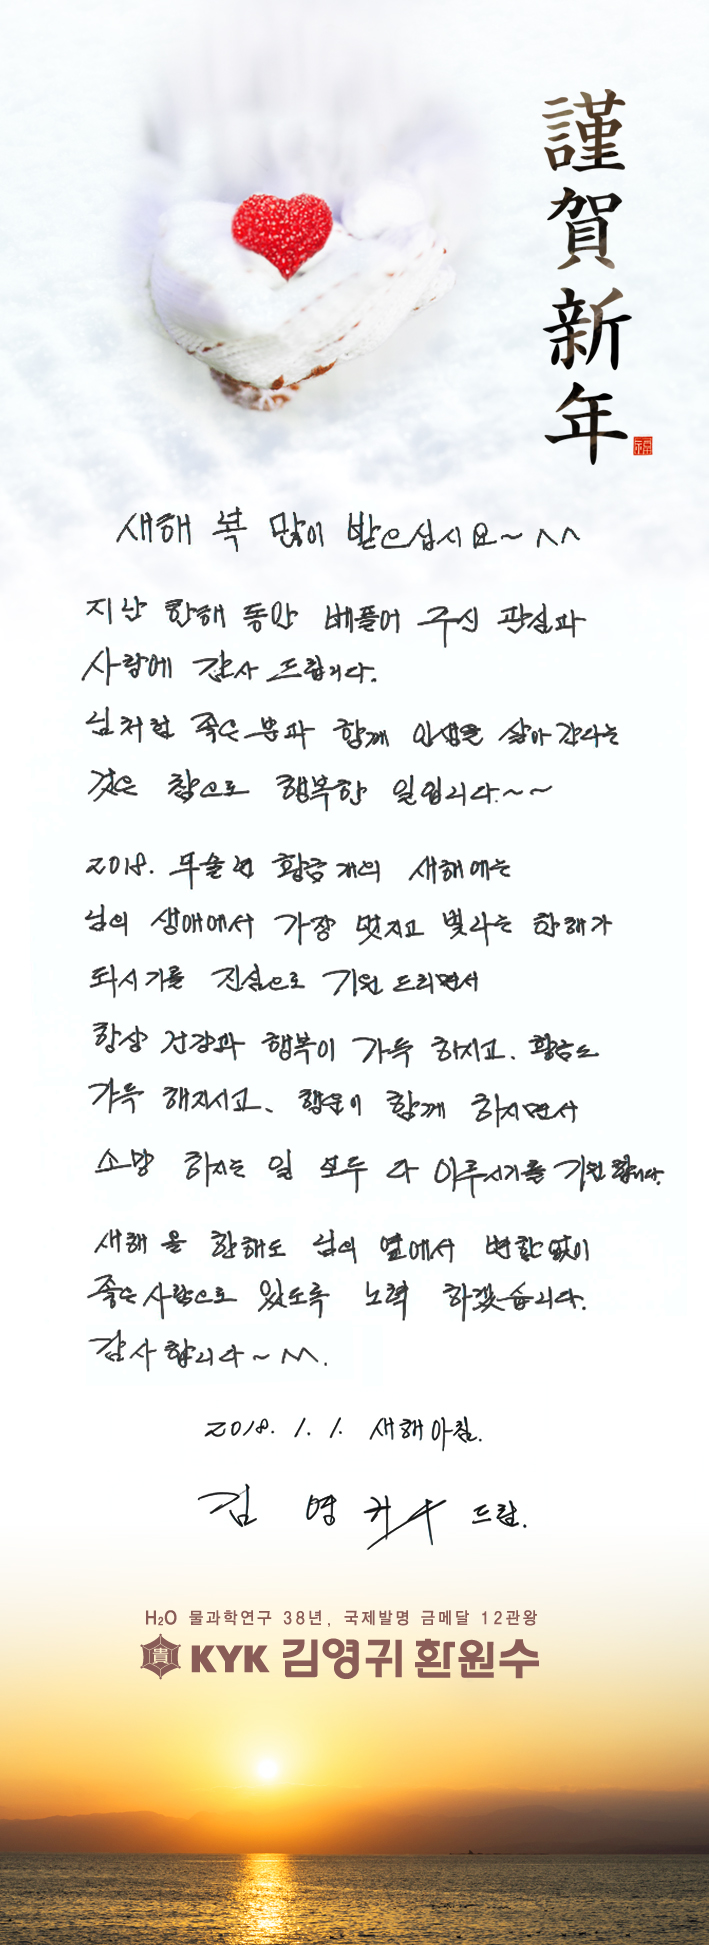 謹賀新年
福
새해 복 많이 받으십시요~ ^^
지난 한해 동안 베풀어 주신 관심과
사랑에 감사 드립니다.
님처럼 좋은 분과 함께 인생을 살아 간다는
것은 참으로 행복한 일입니다.~~
2018. 무술년 황금개의 새해에는
님의 생애에서 가장 멋지고 빛나는 한해가
되시기를 진심으로 기원 드리면서
항상 건강과 행복이 가득 하시고, 황금도
가득 해지시고, 행운이 함께 하시면서
소망 하시는 일 모두 다 이루시기를 기원 합니다.
새해 올 한해도 님의 옆에서 변함없이
좋은 사람으로 있도록 노력 하겠습니다.
감사합니다~ ^^.
2018. 1. 1. 새해아침.
김 영 귀 드림.
H₂O 물과학연구 38년, 국제발명 금메달 12관왕
貴 KYK 김영귀환원수